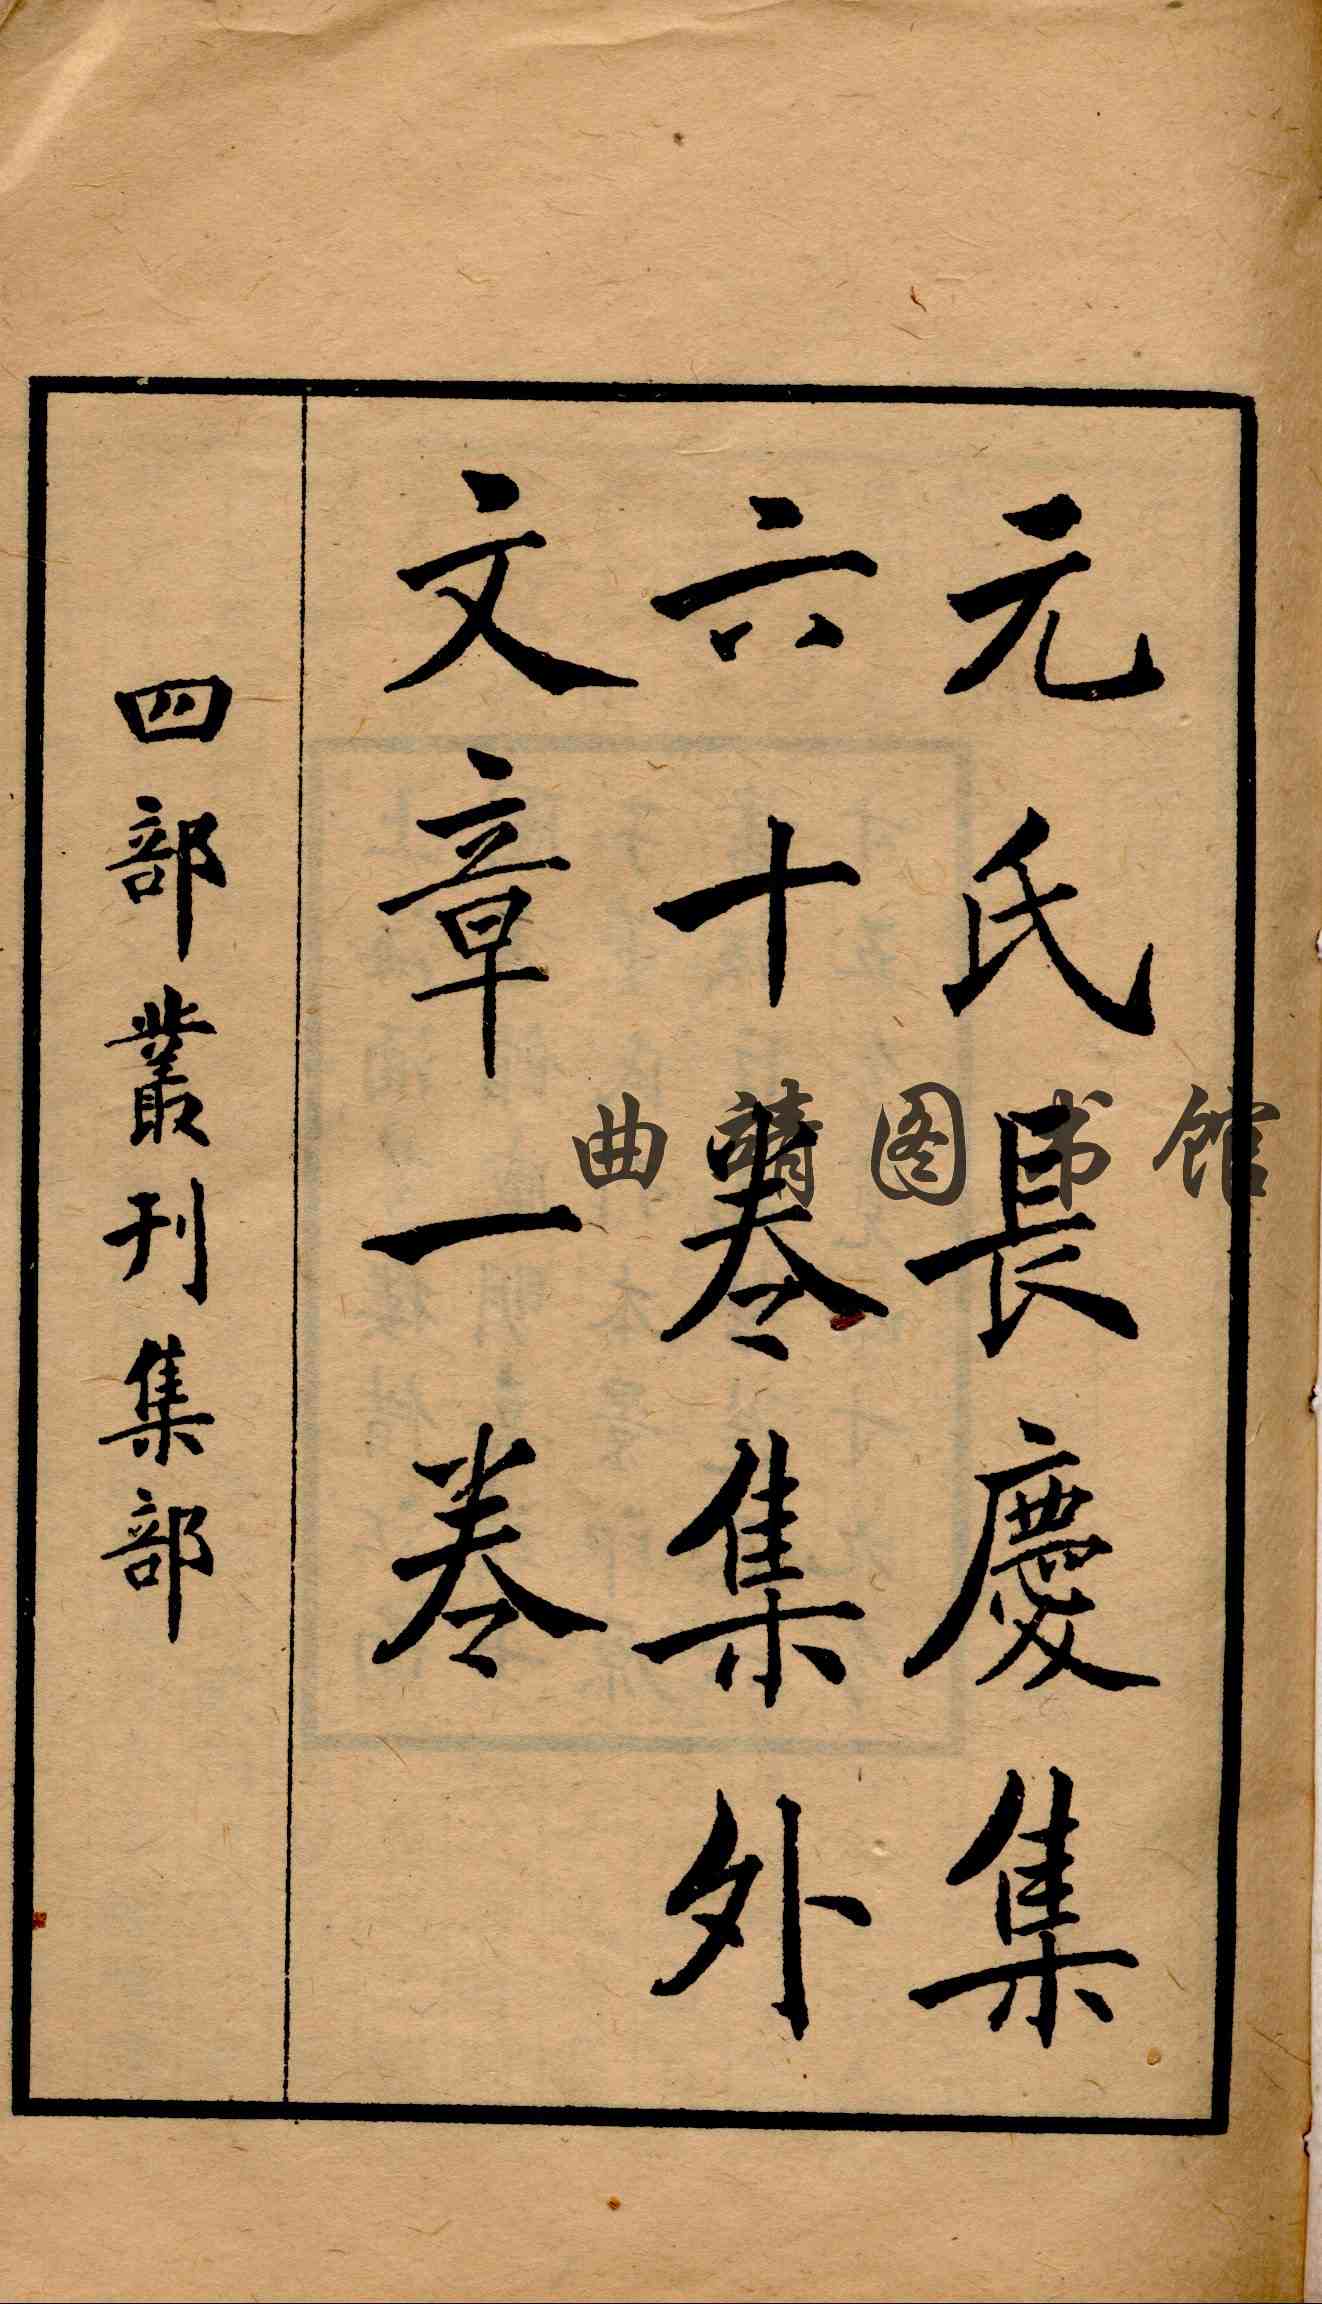 元氏長慶集
六十卷集外
文章一卷
四部叢刊集部
曲靖图书馆